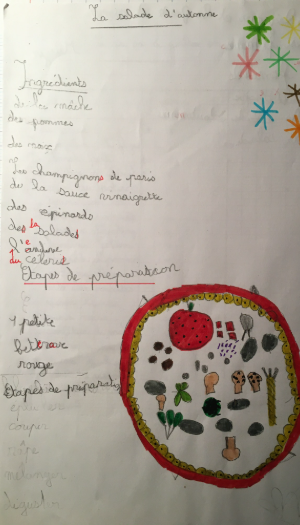 La salade d'automne
Ingrédients
de la mâche
des pommes
des noix
Les champignons de paris
de la sauce vinaigrette
des épinards
de la salade
du celeris
Etapes de préparation
1 petite
betterave
rouge
Etapes de préparation
couper
râpe
mélanger